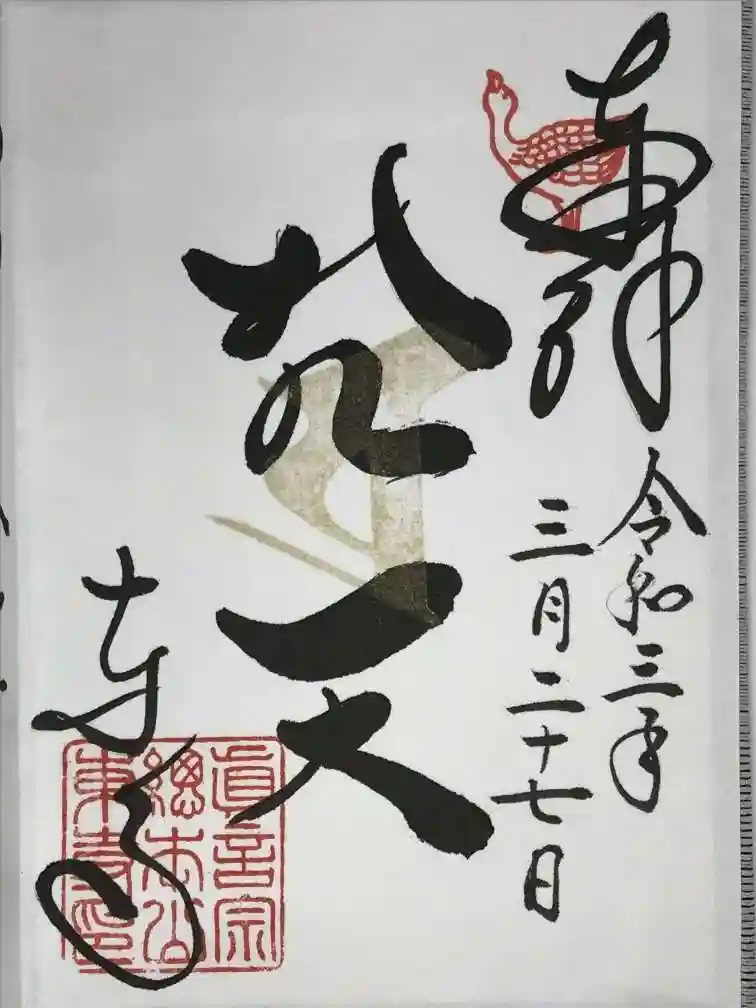 奉拝
令和三年
三月二十七日
東寺
眞言宗
總本山
東寺印